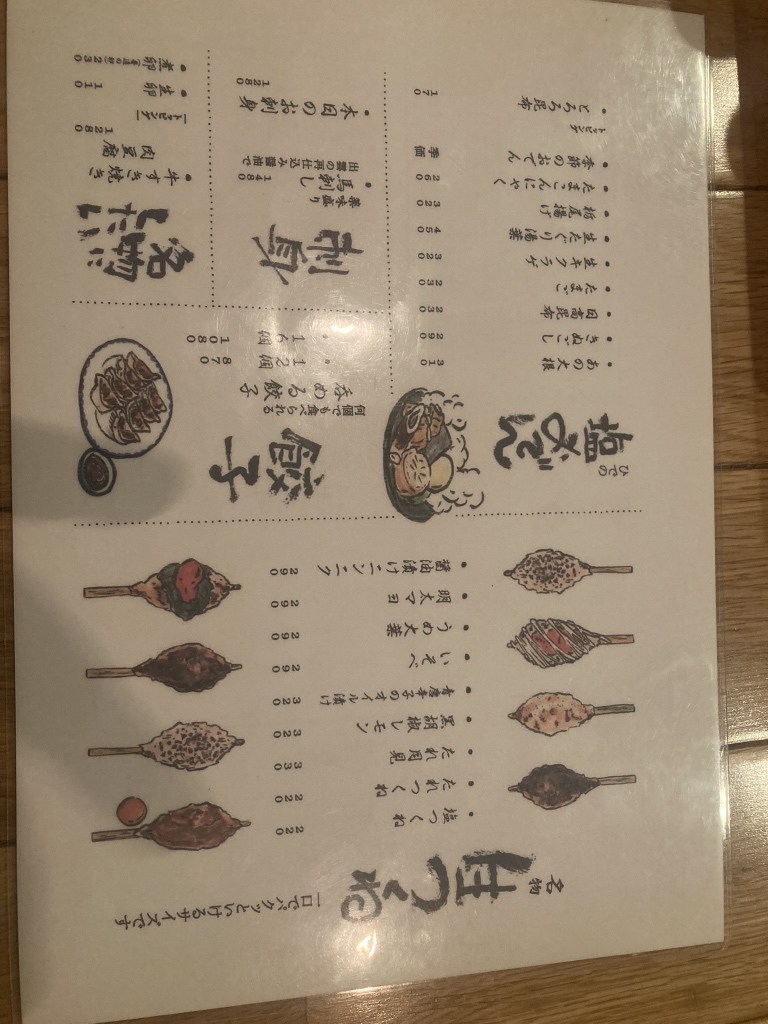 名物
生つくね
一口でパクッといけるサイズです
塩つくね 220
たれつくね 220
たれ月見 330
黒胡椒レモン 320
青唐辛子のオイル漬け 320
いそべ 290
うめ大葉 290
明太マヨ 290
醤油漬けニンニク 290
ひでの
塩おでん
あの大根 310
きぬごし 260
日高昆布 230
たまご 230
生キクラゲ 320
生たぐり湯葉 450
栃尾揚げ 320
たまこんにゃく 260
季節のおでん 季価
トッピング
とろろ昆布 170
餃子
何個でも食べられる
呑める餃子
12個 870
16個 1080
刺身
薬味盛り
馬刺し 1480
出雲の再仕込み醤油で
本日のお刺身 1280
名物
牛すき焼き
肉豆腐 1280
トッピング
生卵 110
煮卵 230